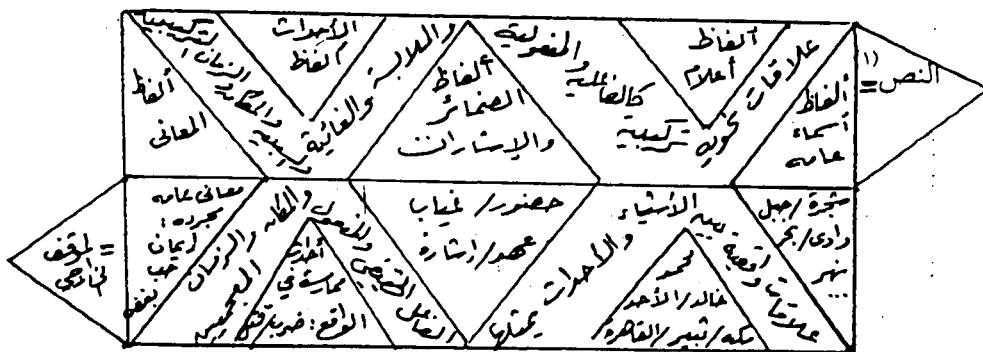 النص =
(١)
ألفاظ
أسماء
عامه
علاقات نحويه تركيبية
ألفاظ
أعلام
كالفاعليه و المفعولية
ألفاظ
الضمائر
والإشارات
والملابسة والغائية والسببيه والمكان والزمان التركيبيه
الأحداث
ألفاظ
ألفاظ
المعانى
شجرة/جبل
وادى/بحر
نهر
...
علاقات واقعية بين الأشياء
والأحداث يمثلها
محمد
خالد/الأحد
مكه/ثبير/القاهرة
حضور/غياب
عهد/إشارة
الفاعل والمفعول والمكان والزمان المعجميين
أحداث
ممارسة في
الواقع: ضرب
معانى عامه
مجرده:
إيمان
حب
بغض
= الموقف
الخارجى